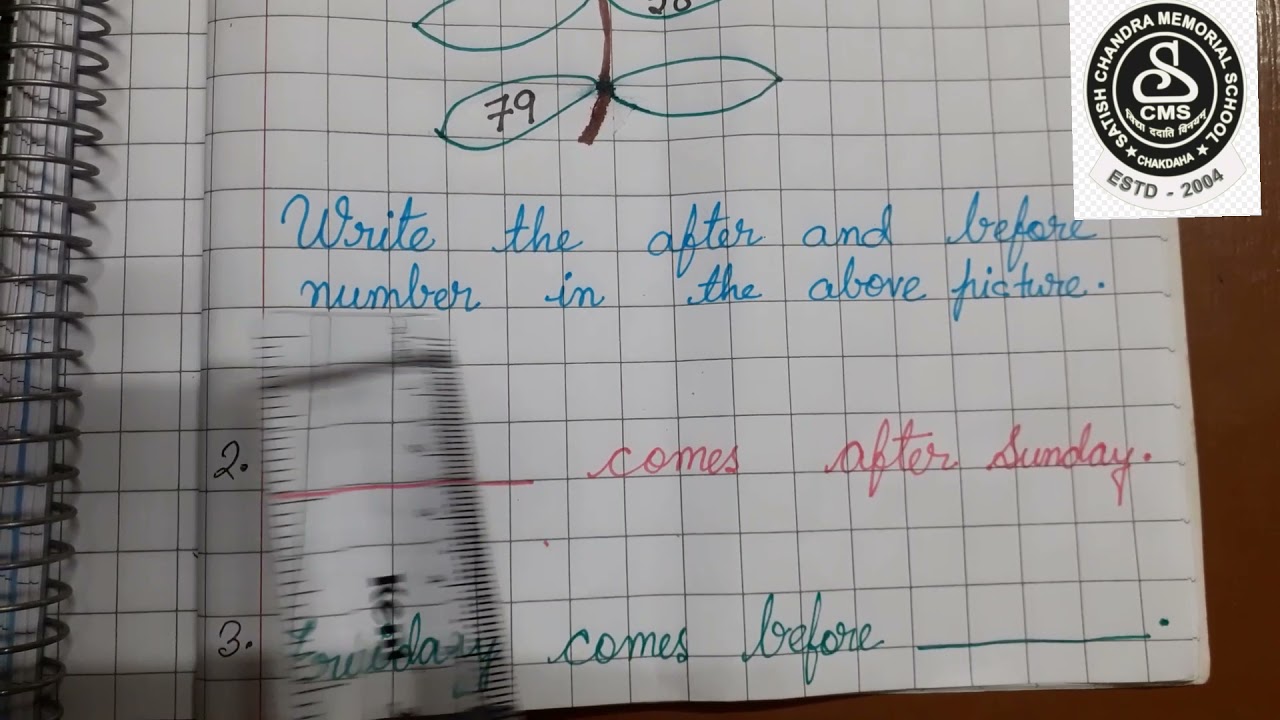 79
Write the after and before
number in the above picture.
2. comes after Sunday.
3. comes before .
SATISH CHANDRA MEMORIAL SCHOOL
CMS
CHAKDAHA
ESTD - 2004